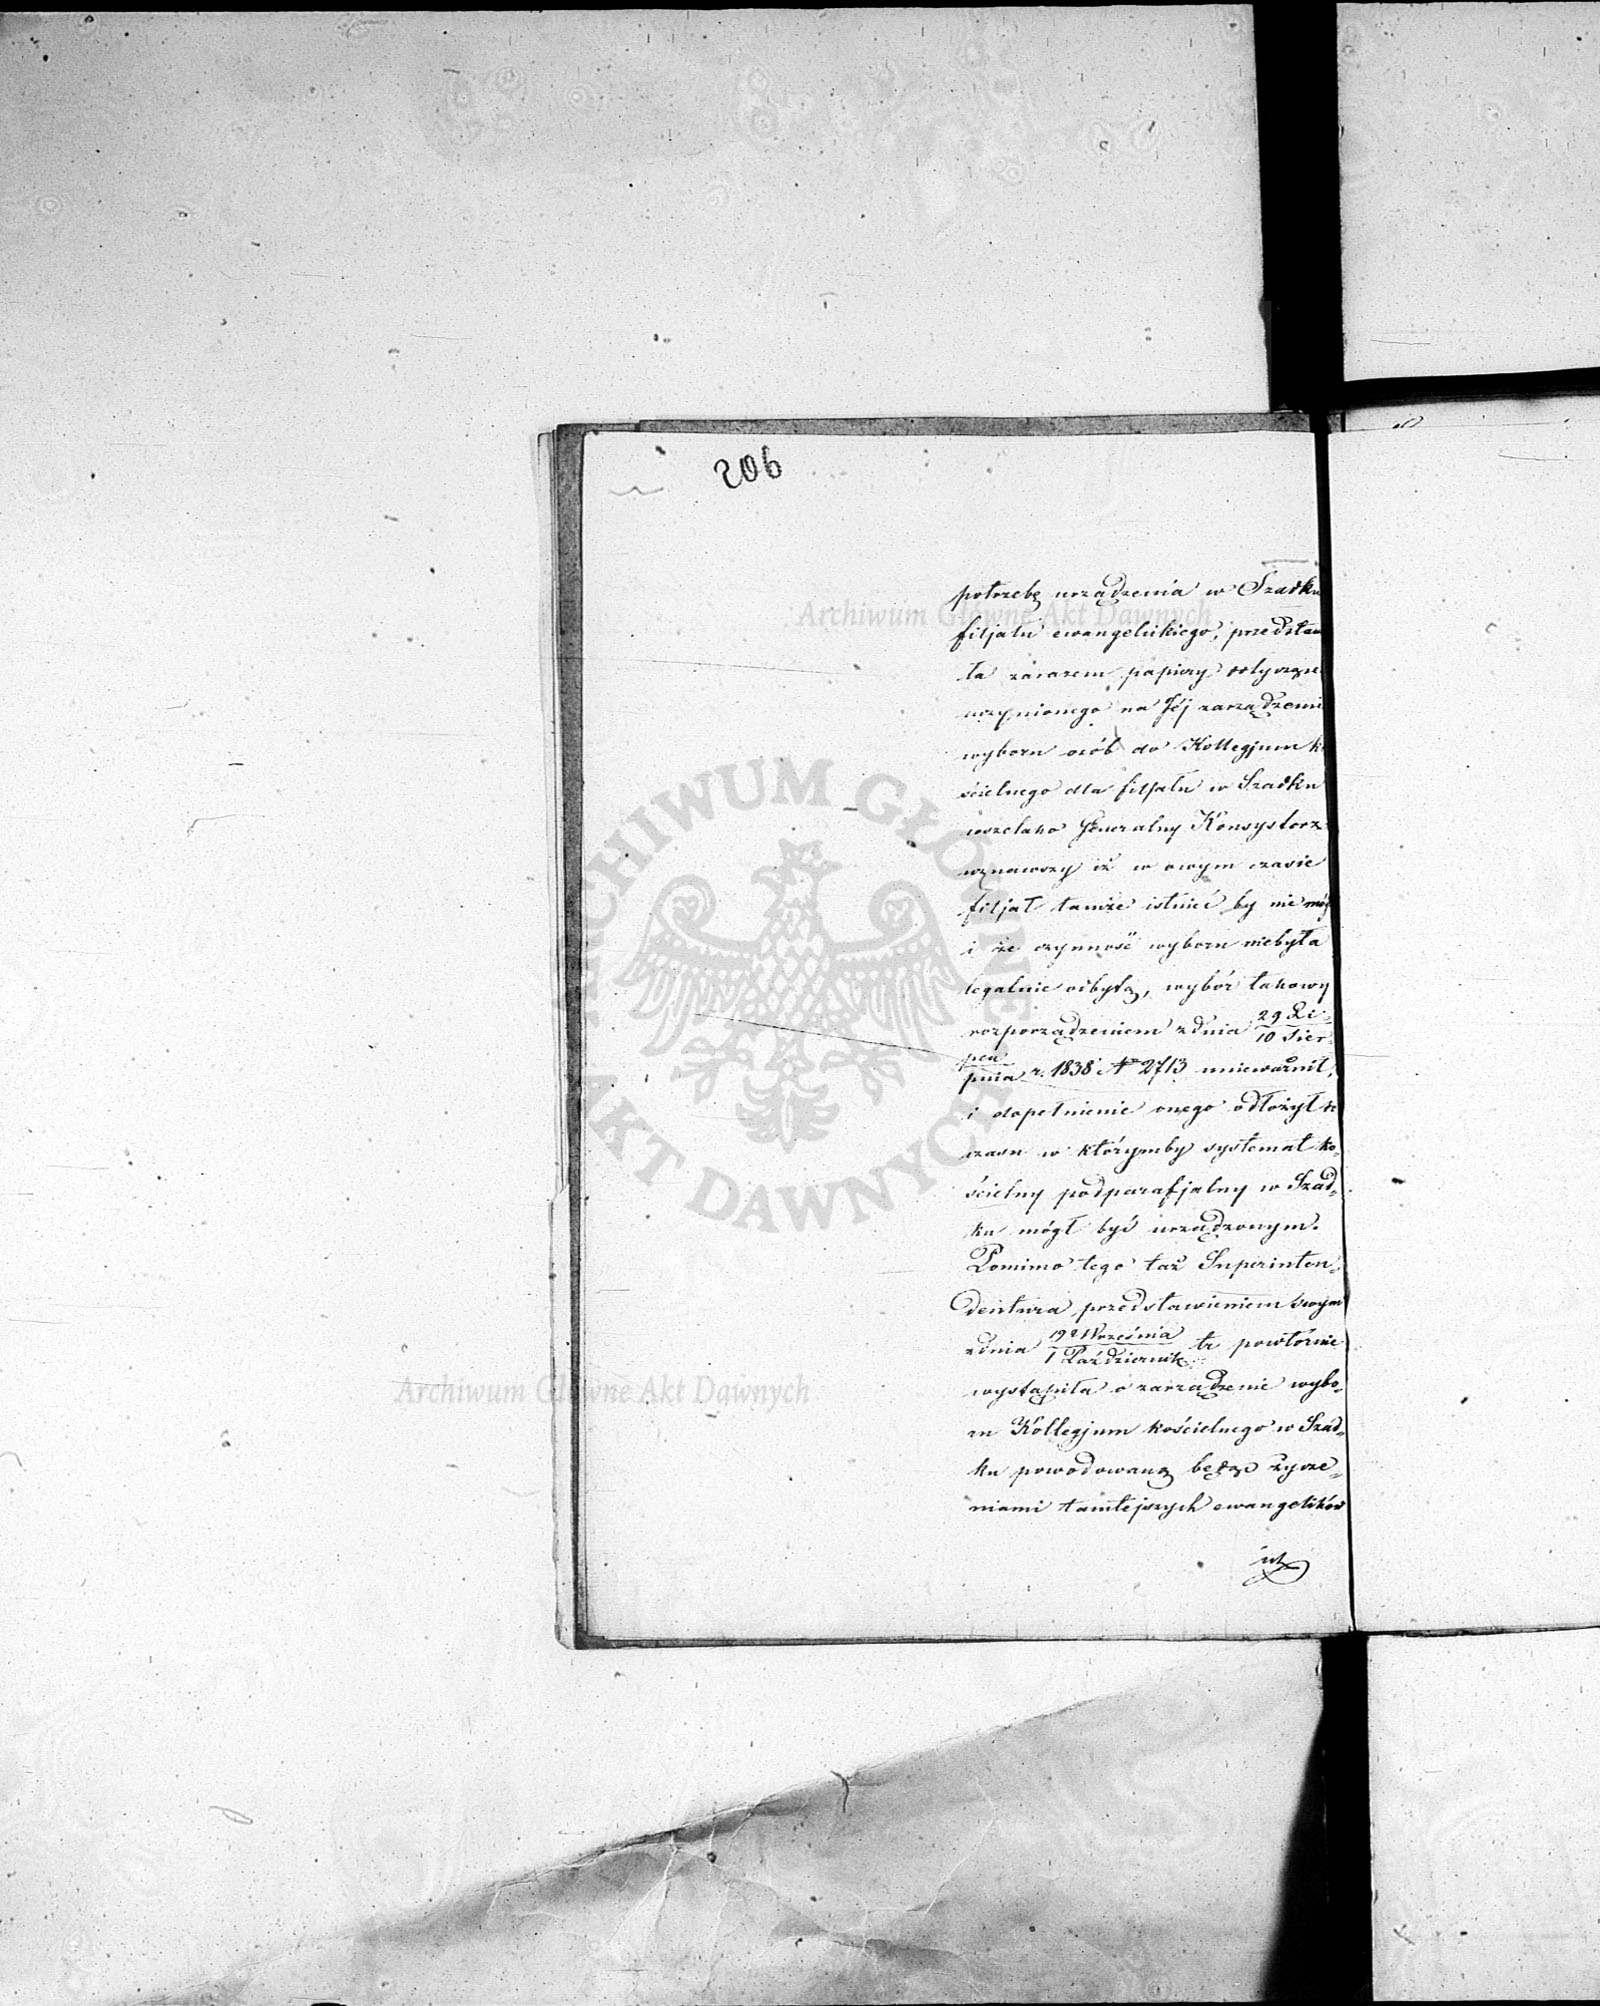 206
potrzebę urządzenia w Szadku
filjału ewangelickiego, przedstawi
ła zarazem papiery dotyczące
uczynionego na Jéj zarządzenie
wyboru osób do Kollegjum k
ścielnego dla filjału w Szadku
wszelako Generalny Konsystorz
uznawszy iż w owym czasie
filjał tamże istnieć by nie móg
i że czynność wyboru niebyła
legalnie odbytą, wybór takowy
rozporządzeniem z dnia 29 Li-
10 Sier-
pca
pnia r. 1838 No 2713 unieważnił,
i dopełnienie onego odłożył
czasu w którymby systemat ko-
ścielny podparafjalny w Szad-
ku mógł być urządzonym.
Pomimo tego taż Superinten-
dentura przedstawieniem swym
z dnia 19 Września
1 Październik tr powtórnie
wystąpiła o zarządzenie wybo-
ru Kollegjum kościelnego w Szad-
ku powodowaną będąc życze-
niami tamtejszych ewangelików
Archiwum Główne Akt Dawnych
ARCHIWUM GŁÓWNE AKT DAWNYCH
Archiwum Główne Akt Dawnych